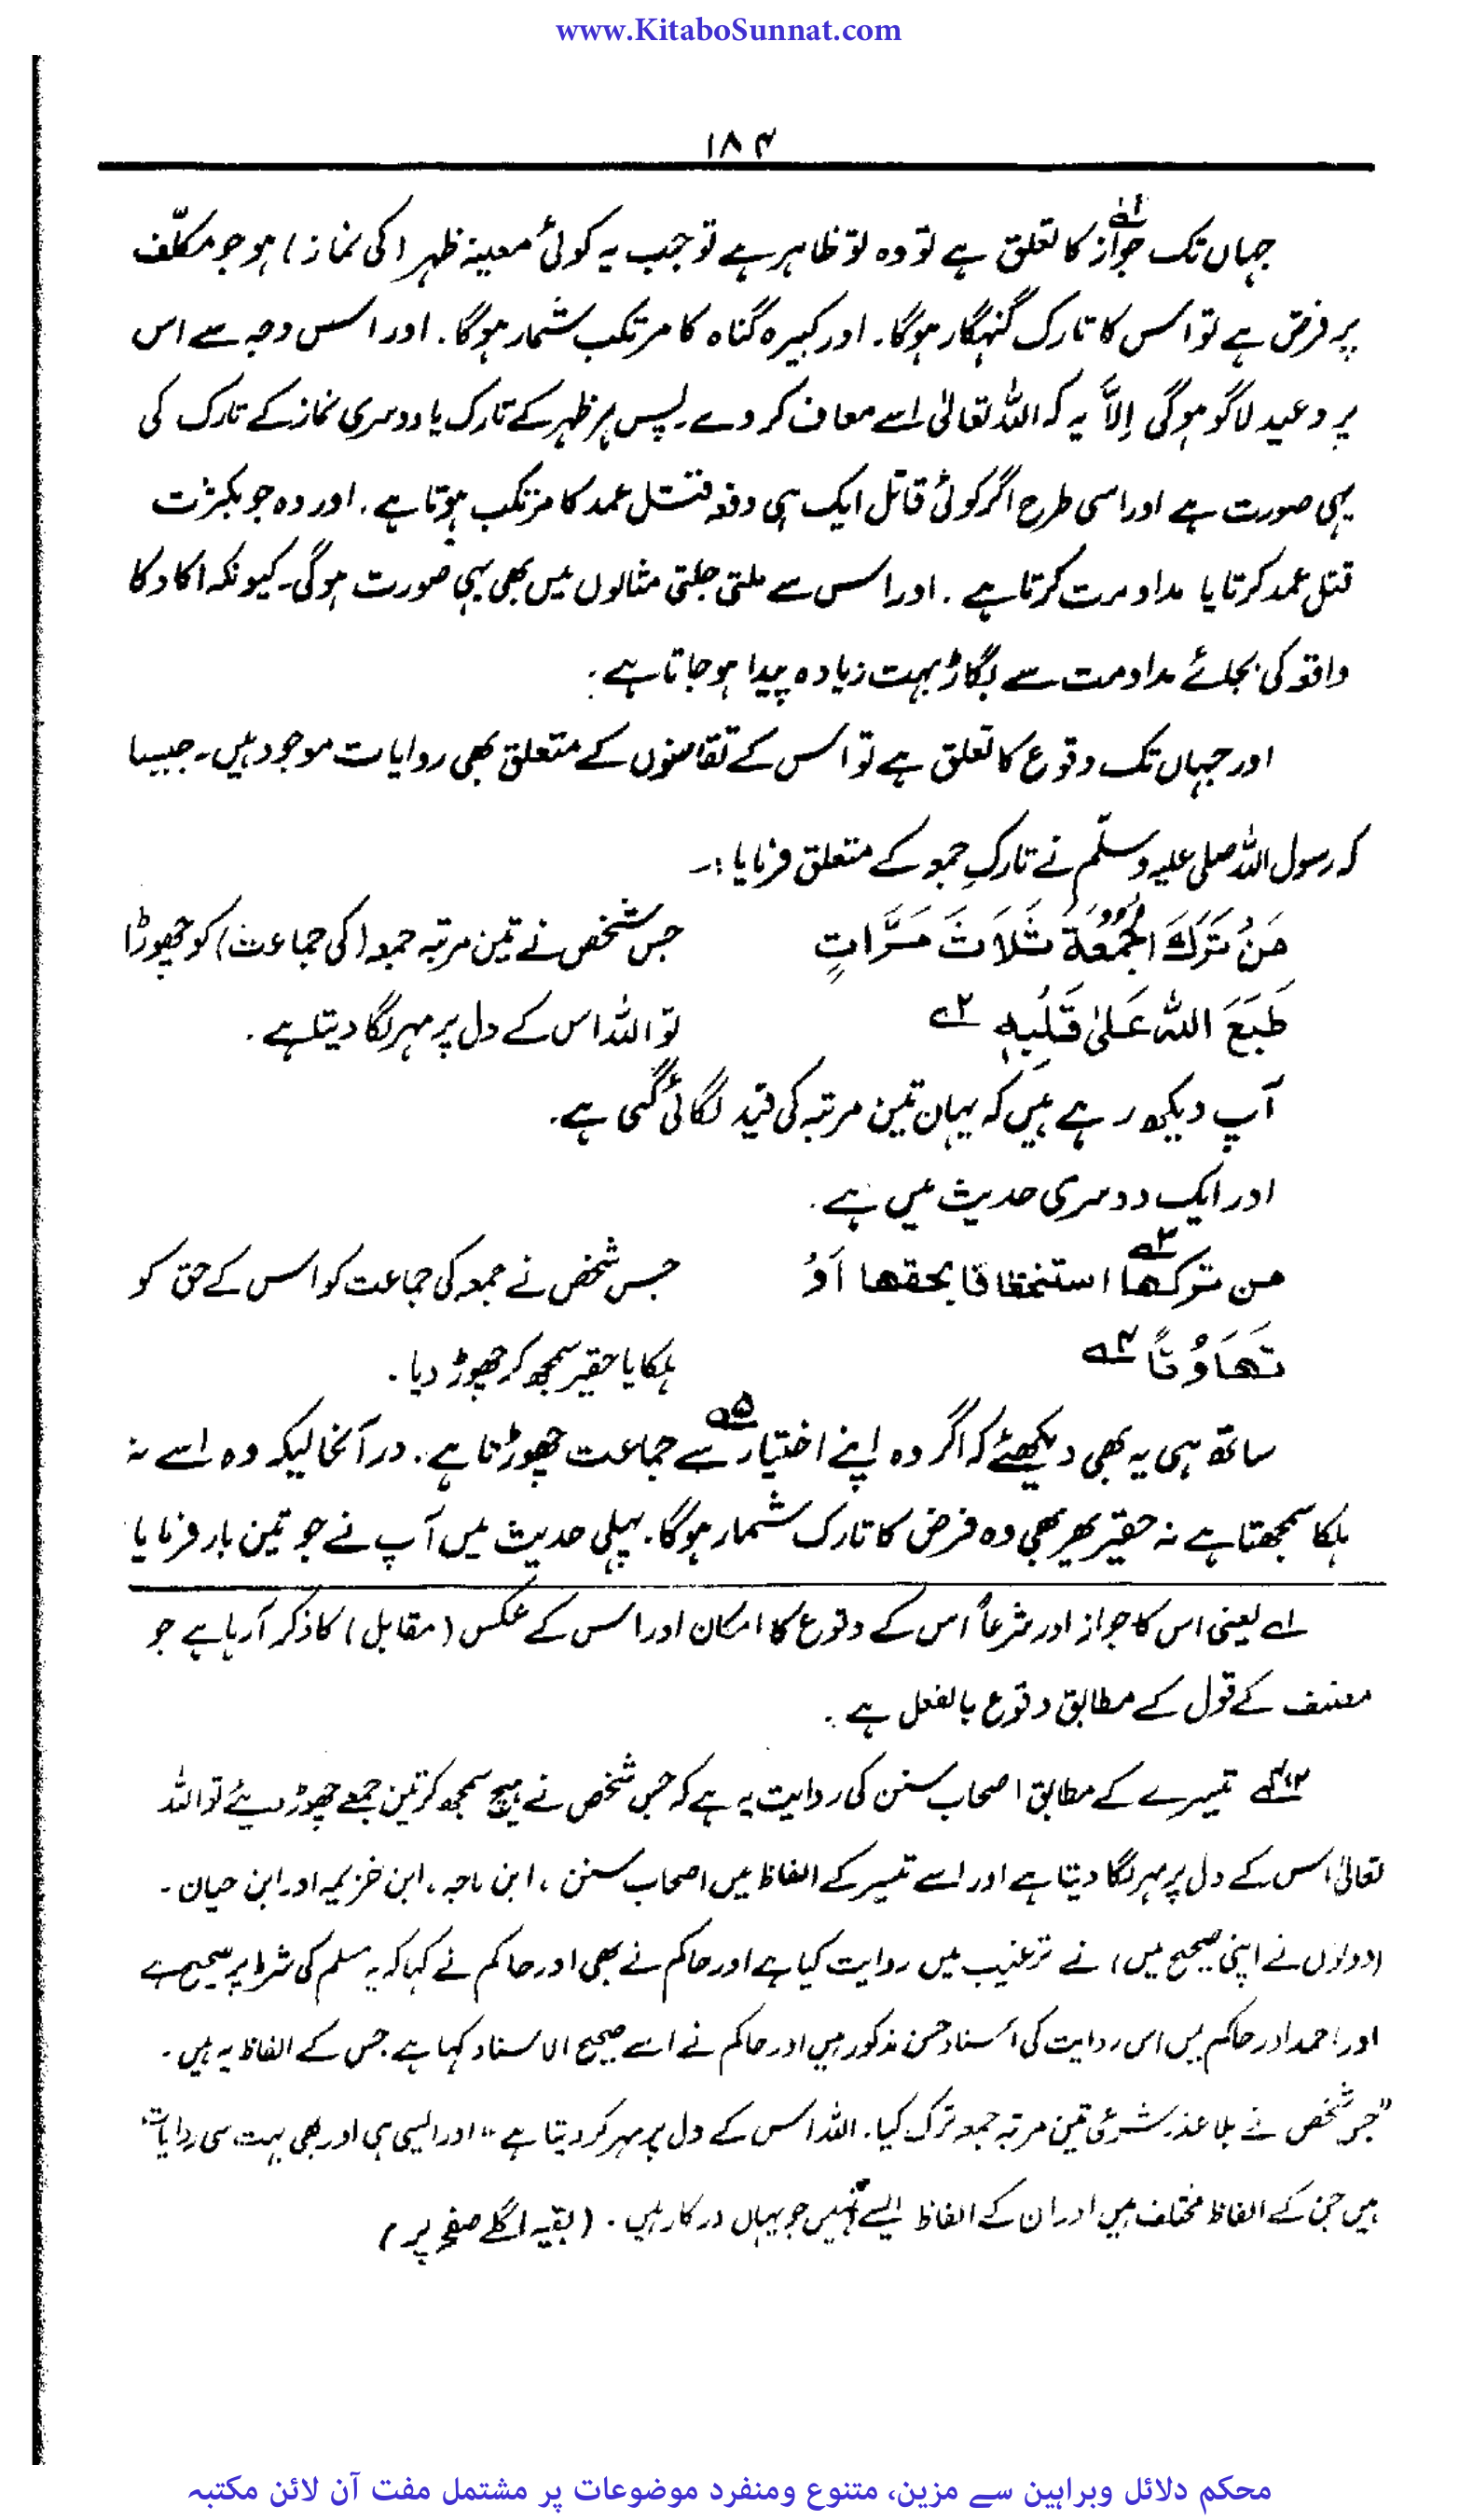 www.KitaboSunnat.com
۱۸۴
جہاں تک جواز۱؎ کا تعلق ہے تو وہ تو ظاہر ہے تو جب یہ کوئی معینہ ظہر (کی نماز) ہو جو مکلّف
پر فرض ہے تو اس کا تارک گنہگار ہوگا۔ اور کبیرہ گناہ کا مرتکب شمار ہوگا۔ اور اس وجہ سے اس
پر وعید لاگو ہوگی اِلاَّ یہ کہ اللہ تعالیٰ اسے معاف کر دے۔ پس ہر ظہر کے تارک یا دوسری نماز کے تارک کی
یہی صورت ہے اور اسی طرح اگر کوئی قاتل ایک ہی دفعہ قتل عمد کا مرتکب ہوتا ہے۔ اور وہ جو بکثرت
قتل عمد کرتا یا مداومت کرتا ہے۔ اور اس سے ملتی جلتی مثالوں میں بھی یہی صورت ہوگی۔ کیونکہ اکا دکا
واقعہ کی بجائے مداومت سے بگاڑ بہت زیادہ پیدا ہو جاتا ہے۔
اور جہاں تک وقوع کا تعلق ہے تو اس کے تقاضوں کے متعلق بھی روایات موجود ہیں۔ جیسا
کہ رسول اللہ صلی علیہ وسلّم نے تارکِ جمعہ کے متعلق فرمایا:۔
مَنْ تَرَكَ الْجُمُعَةَ ثَلَاثَ مَرَّاتٍ
طَبَعَ اللہ عَلیٰ قَلْبِهِ ۲؎
جس شخص نے تین مرتبہ جمعہ (کی جماعت) کو چھوڑا
تو اللہ اس کے دل پر مہر لگا دیتا ہے۔
آپ دیکھ رہے ہیں کہ یہاں تین مرتبہ کی قید لگائی گئی ہے۔
اور ایک دوسری حدیث میں ہے۔
من ترکھا۳؎ استخفافا بحقھا اَوْ
تَھَاوُنًا ۴؎
جس شخص نے جمعہ کی جماعت کو اس کے حق کو
ہلکا یا حقیر سمجھ کر چھوڑ دیا۔
ساتھ ہی یہ بھی دیکھئے کہ اگر وہ اپنے اختیار۵؎ سے جماعت چھوڑتا ہے۔ درآنحالیکہ وہ اسے نہ
ہلکا سمجھتا ہے نہ حقیر پھر بھی وہ فرض کا تارک شمار ہوگا۔ پہلی حدیث میں آپ نے جو تین بار فرمایا
۱؎ یعنی اس کا جواز اور شرعاً اس کے وقوع کا امکان اور اس کے عکس (مقابل) کا ذکر آرہا ہے جو
مصنف کے قول کے مطابق وقوع بالفعل ہے۔
تیسرے کے مطابق اصحاب سنن کی روایت یہ ہے کہ جس شخص نے ہیچ سمجھ کر تین جمعے چھوڑ دیئے تو اللہ
تعالیٰ اس کے دل پر مہر لگا دیتا ہے اور اسے تیسیر کے الفاظ میں اصحاب سنن، ابن ماجہ، ابن خزیمہ اور ابن حبان۔
(دونوں نے اپنی صحیح میں) نے ترغیب میں روایت کیا ہے اور حاکم نے بھی اور حاکم نے کہا کہ یہ مسلم کی شرط پر صحیح ہے
اور احمد اور حاکم میں اس روایت کی اسناد حسن مذکور ہیں اور حاکم نے اسے صحیح الاسناد کہا ہے جس کے الفاظ یہ ہیں۔
"جس شخص نے بلا عذر شرعی تین مرتبہ جمعہ ترک کیا۔ اللہ اس کے دل پر مہر کر دیتا ہے" اور ایسی ہی اور بھی بہت سی روایات
ہیں جن کے الفاظ مختلف ہیں اور ان کے الفاظ ایسے نہیں جو یہاں درکار ہیں۔ (بقیہ اگلے صفحہ پر)
محکم دلائل وبراہین سے مزین، متنوع ومنفرد موضوعات پر مشتمل مفت آن لائن مکتبہ